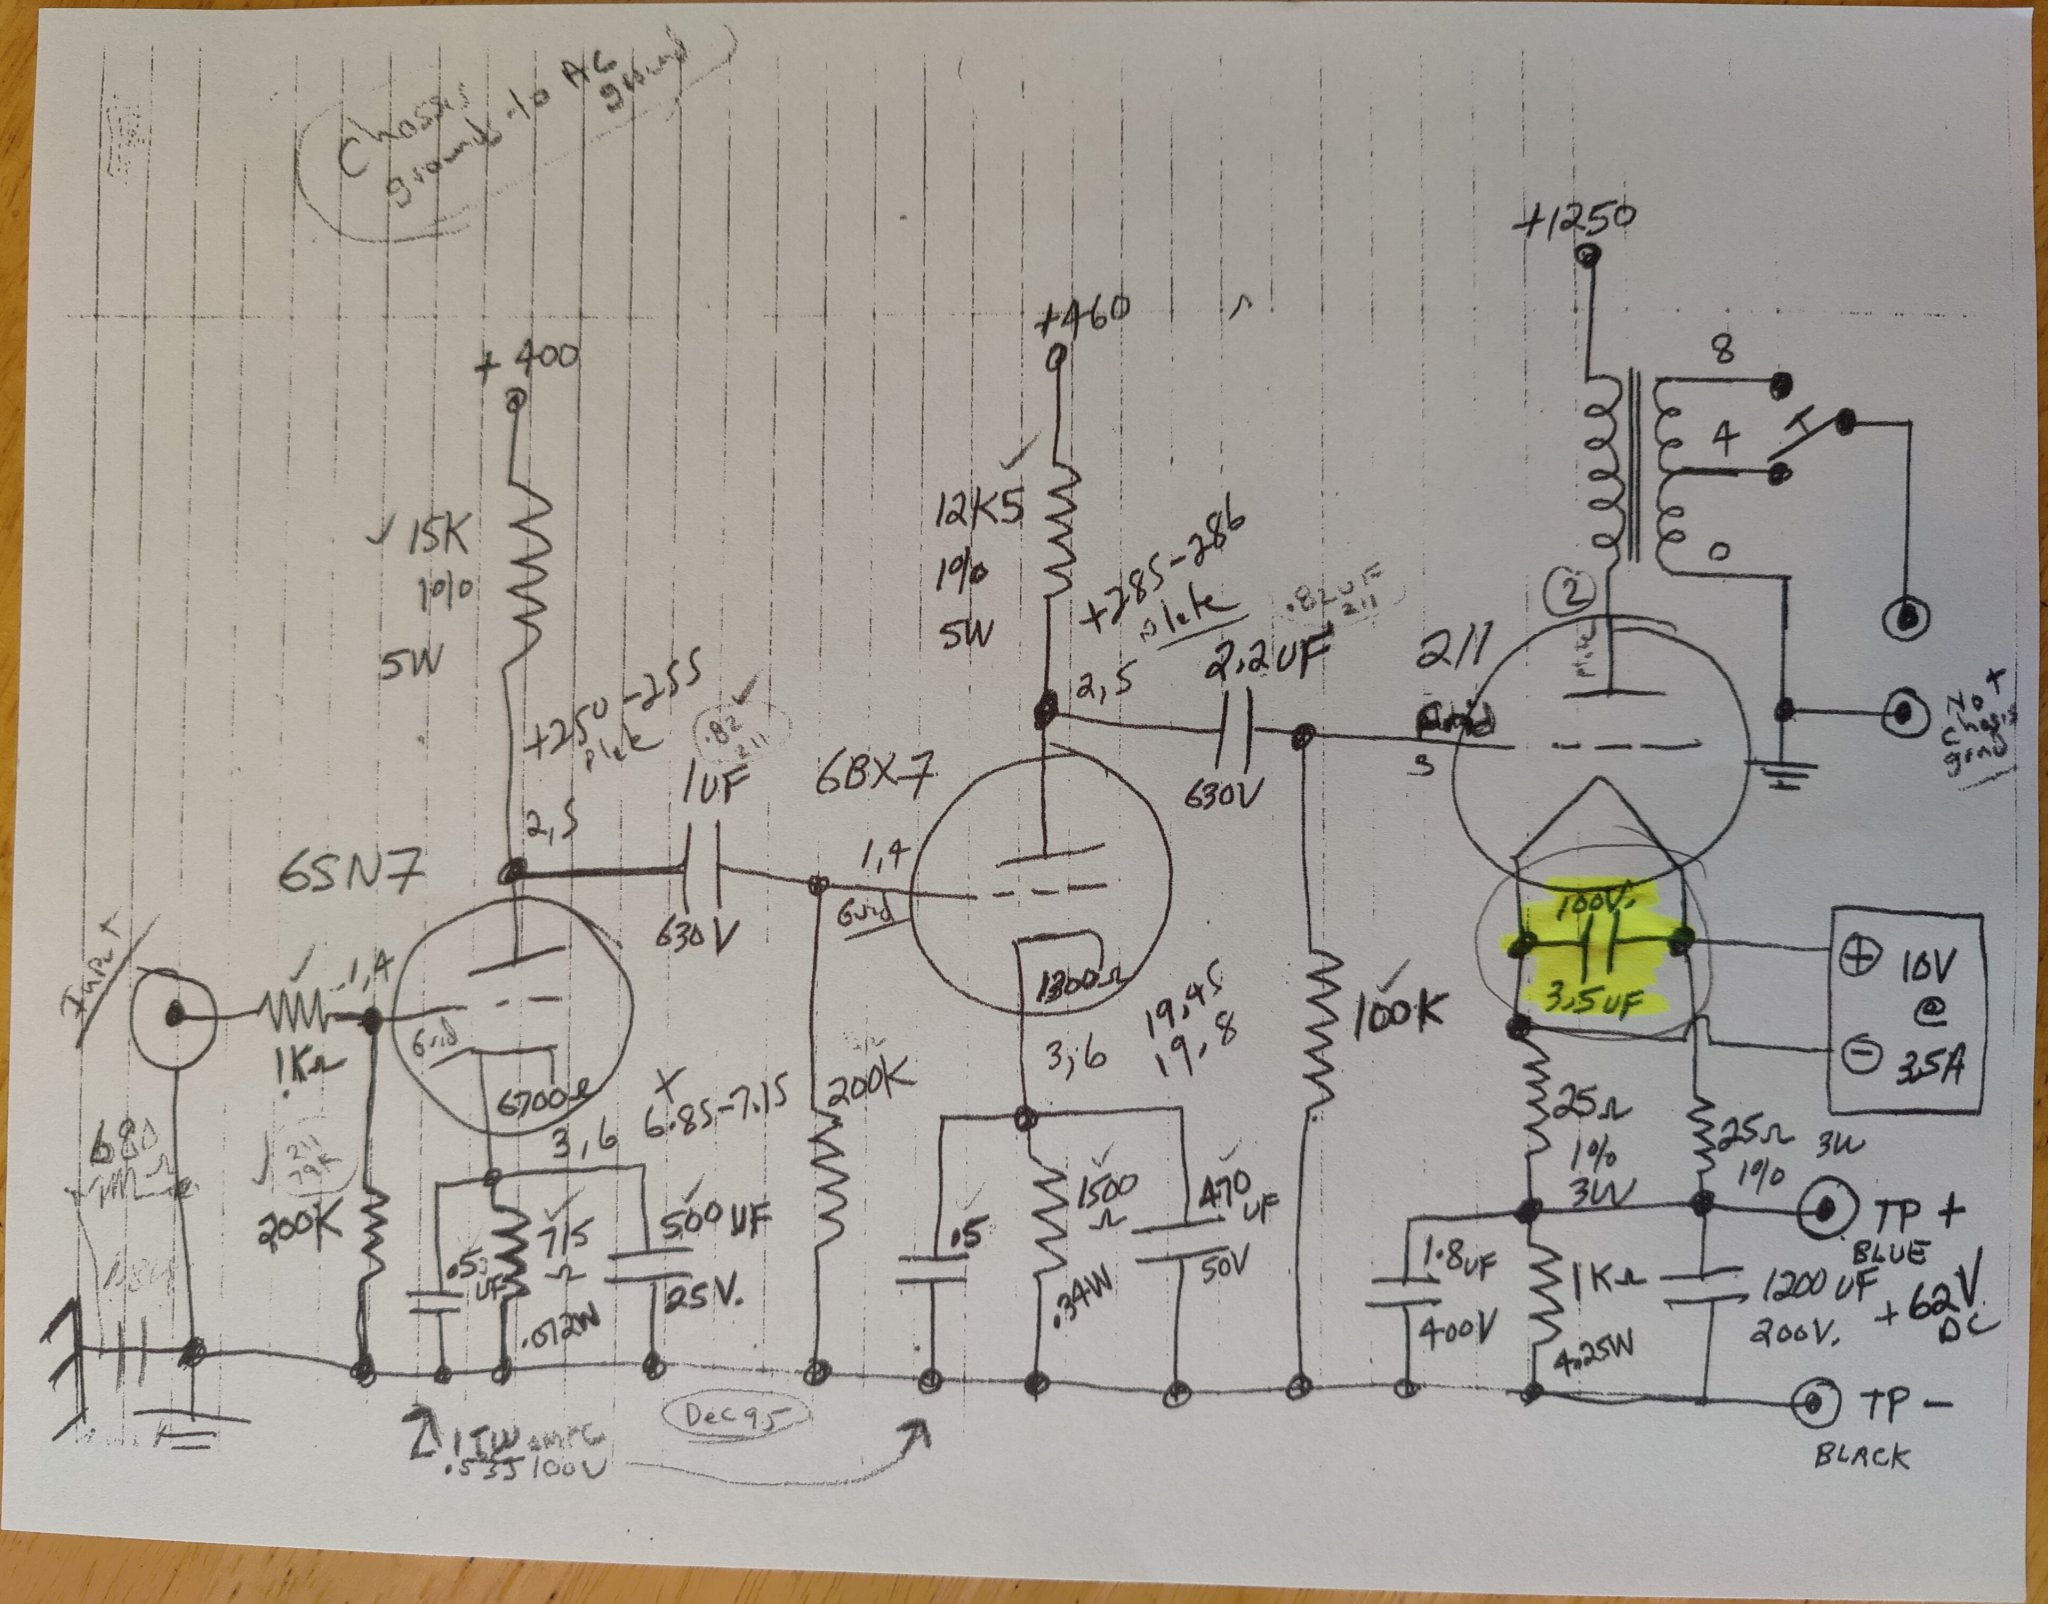 Chassis
ground to AC
ground
+1250
+460
+400
8
4
0
15K
1%
5W
12K5
1%
5W
+285-286
plate
.82uF
211
2.2uF
630V
2,5
2
211
3
Not
chasis
grnd
+250-255
plate
.82
211
1uF
630V
2,5
6BX7
1,4
Grid
1300Ω
3,6
19.45
19.8
6SN7
Input
1,4
Grid
1KΩ
6700Ω
3,6
X
6.85-7.15
200K
100K
100V.
3.5uF
10V
@
3.5A
+
−
25Ω
1%
3W
25Ω
1%
3W
680
211
79K
200K
.53
uF
715
Ω
.072W
500uF
25V.
.5
1500
Ω
.34W
470
uF
50V
1.8uF
400V
1KΩ
4.25W
1200uF
200V.
TP +
BLUE
+62V
DC
TP −
BLACK
Dec 95
100V